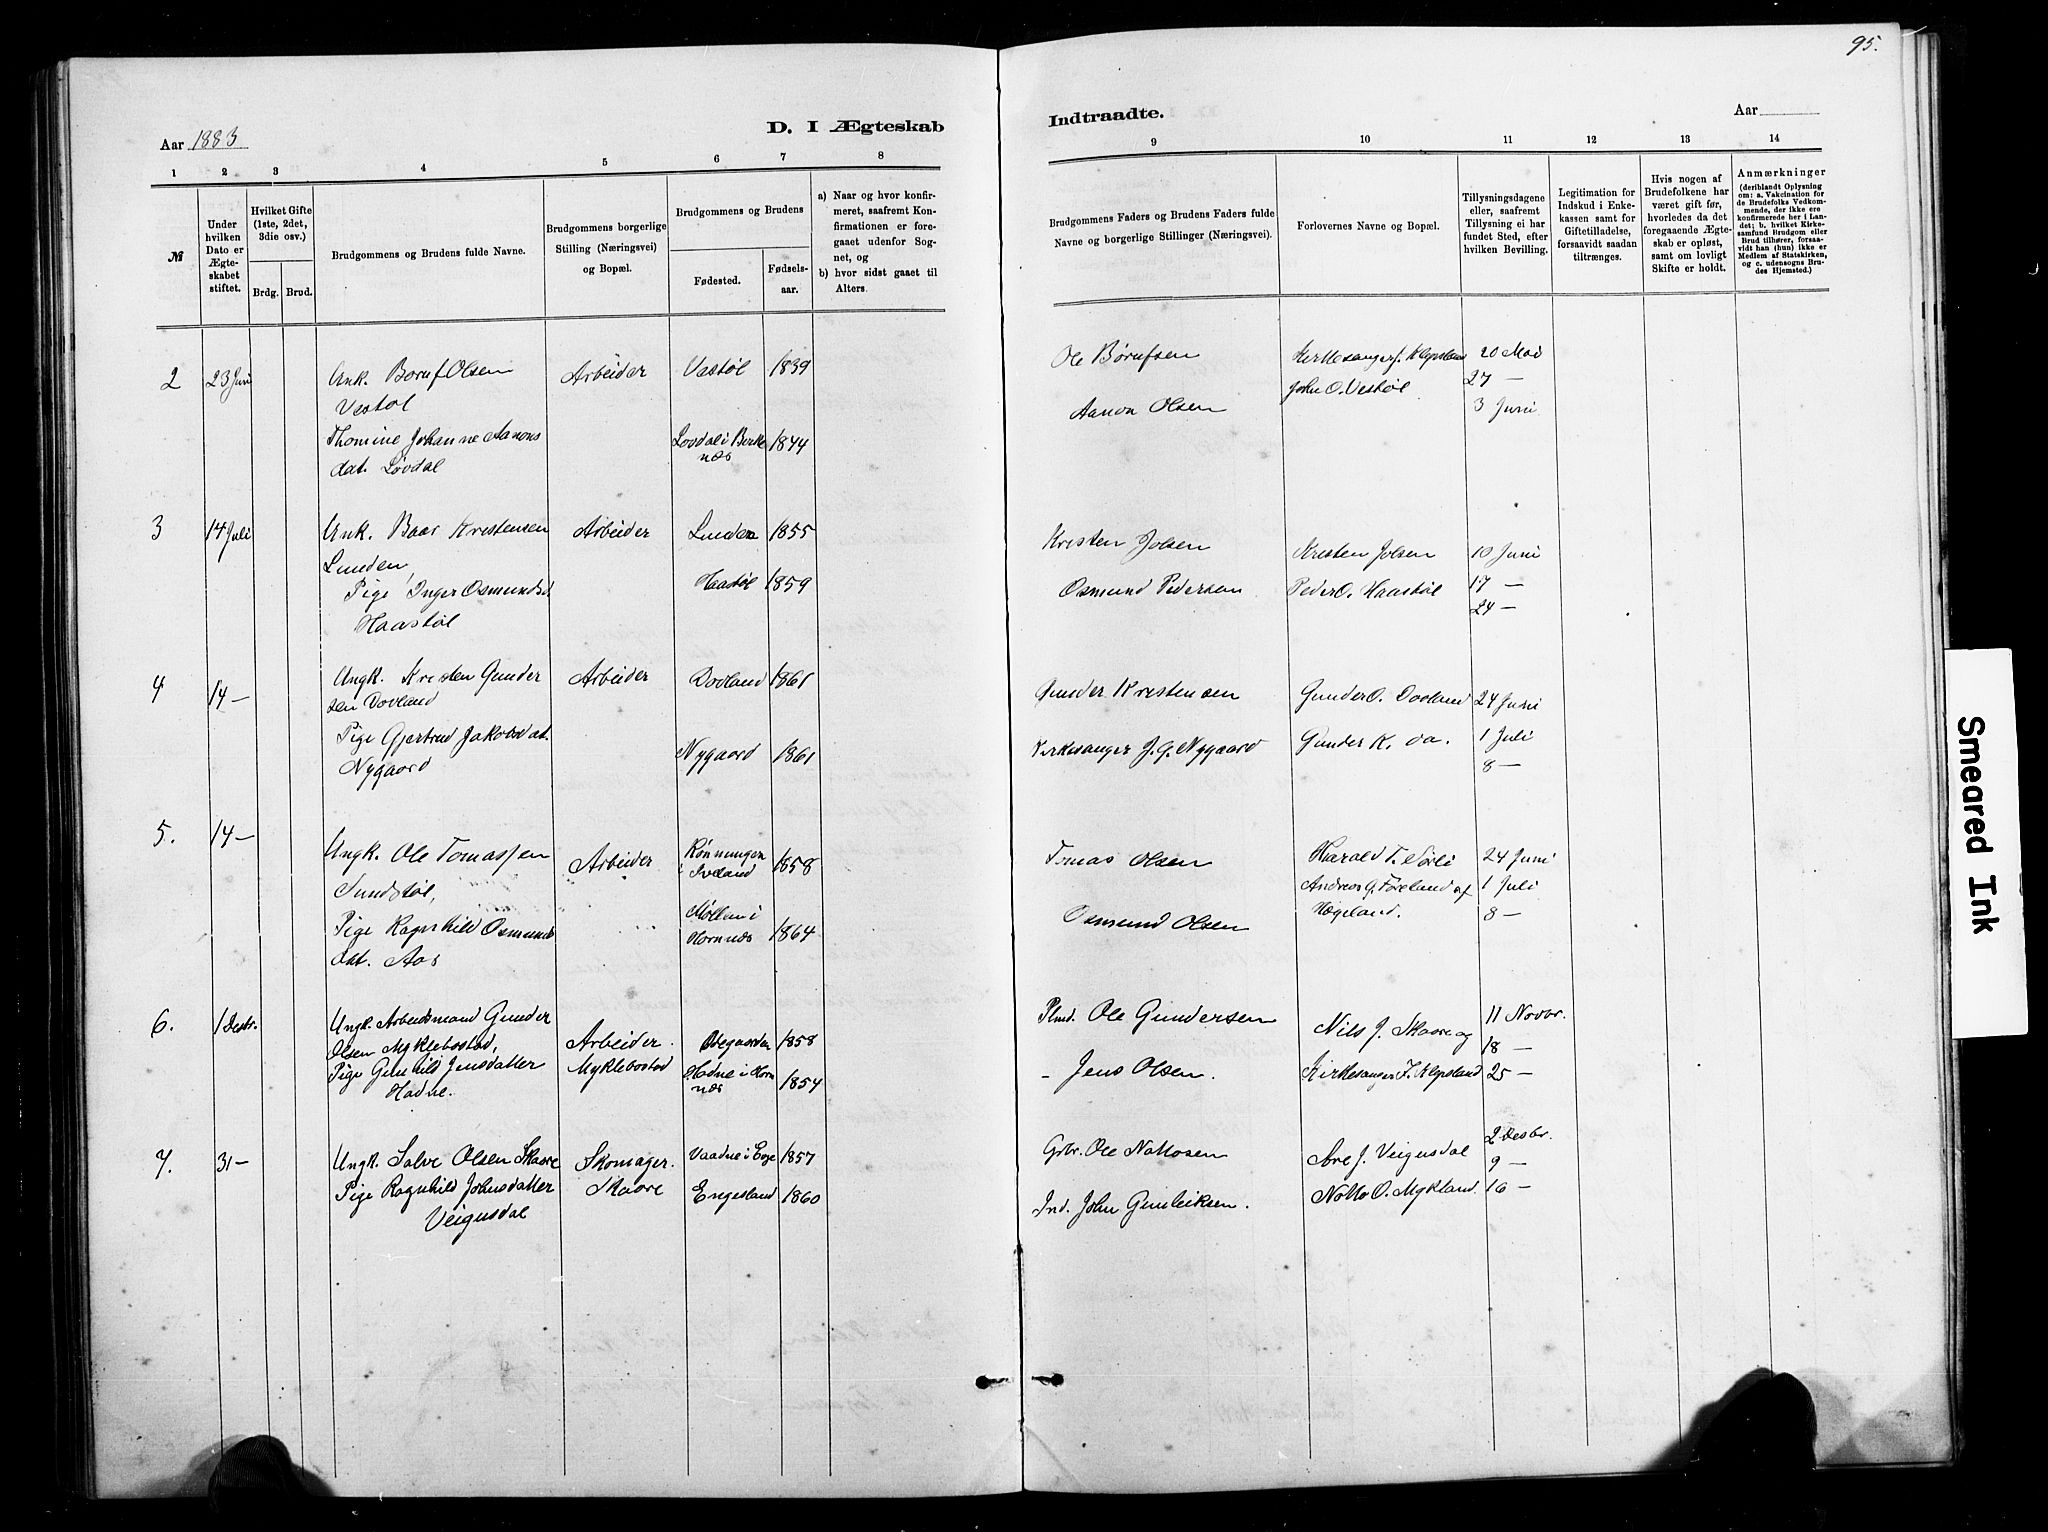 95.
Aar 1883
D. I Ægteskab
Indtraadte.
Aar
1 2 3 4 5 6 7 8
9 10 11 12 13 14
№
Under hvilken Dato er Ægteskabet stiftet.
Hvilket Gifte (1ste, 2det, 3die osv.)
Brdg. Brud.
Brudgommens og Brudens fulde Navne.
Brudgommens borgerlige Stilling (Næringsvei) og Bopæl.
Brudgommens og Brudens
Fødested.
Fødsels-aar.
a) Naar og hvor konfirmeret, saafremt Konfirmationen er foregaaet udenfor Sognet, og
b) hvor sidst gaaet til Alters.
Brudgommens Faders og Brudens Faders fulde Navne og borgerlige Stillinger (Næringsvei).
Forlovernes Navne og Bopæl.
Tillysningsdagene eller, saafremt Tillysning ei har fundet Sted, efter hvilken Bevilling.
Legitimation for Indskud i Enkekassen samt for Giftetilladelse, forsaavidt saadan tiltrænges.
Hvis nogen af Brudefolkene har været gift før, hvorledes da det foregaaende Ægteskab er opløst, samt om lovligt Skifte er holdt.
Anmærkninger
(deriblandt Oplysning om: a. Vakcination for de Brudefolks Vedkommende, der ikke ere konfirmerede her i Landet; b. hvilket Kirkesamfund Brudgom eller Brud tilhører, forsaavidt han (hun) ikke er Medlem af Statskirken, og c. udensogns Brudes Hjemsted.)
2 23 Juni Unk. Boruf Olsen Arbeider Vastøl 1839
Vestøl
Thomine Johanne Aanons Lovdal i Birke 1844
dat. Løvdal næs
Ole Børufsen Kirkesanger J. Klepsland 20 Mai
John O. Vestøl 27 —
Aanon Olsen 3 Juni
3 14 Juli Unk. Baar Kristensen Arbeider Lunden 1855
Lunden,
Pige Inger Osmundsd. Haastøl 1859
Haastøl
Kristen Jolsen Kristen Jolsen 10 Juni
Osmund Pedersen Peder O. Haastøl 17 —
24 —
4 14 — Ungk. Kristen Gunder Arbeider Dovland 1861
sen Dovland
Pige Gjertrud Jakobsdat. Nygaard 1861
Nygaard
Gunder Kristensen Gunder O. Dovland 24 Juni
Kirkesanger J. G. Nygaard Gunder K. do. 1 Juli
8 —
5. 14 — Ungk. Ole Tomassen Arbeider Rønningen i Iveland 1858
Sundstøl,
Pige Ragnhild Osmunds Møllen i Hornnæs 1864
dat. Aas
Tomas Olsen Harald T. Sørli 24 Juni
Andreas G. Føreland af 1 Juli
Osmund Olsen Hægeland. 8 —
6. 1 Desbr. Ungk. Arbeidsmand Gunder
Olsen Myklebostad, Arbeider. Ødegaarden 1858
Pige Gunhild Jensdatter Myklebostad Hadne i Horn 1854
Hadne. næs
Plmd. Ole Gundersen Nils J. Skaare og 11 Novbr.
18 —
— Jens Olsen. Kirkesanger J. Klepsland 25 —
7. 31 — Ungk. Salve Olsen Skaare Skomager. Vaadne i Evje 1857
Pige Ragnhild Johnsdatter Skaare Engesland 1860
Veigusdal
Gbr. Ole Nottosen Are J. Veigusdal 2 Desbr.
9 —
Ind. John Gunleiksen. Notto O. Mykland. 16 —
Smeared Ink